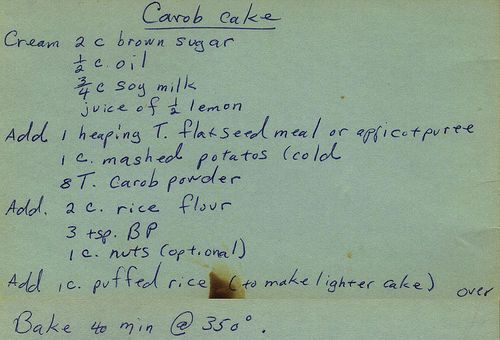 Carob cake
Cream 2 c brown sugar
½ c. oil
¾ c soy milk
juice of ½ lemon
Add 1 heaping T. flatseed meal or appicotpuree
1 c. mashed potatos (cold
8 T. Carob powder
Add. 2 c. rice flour
3 tsp. BP
1 c. nuts (optional)
Add 1c. puffed rice (to make lighter cake)
over
Bake 40 min @ 350°.